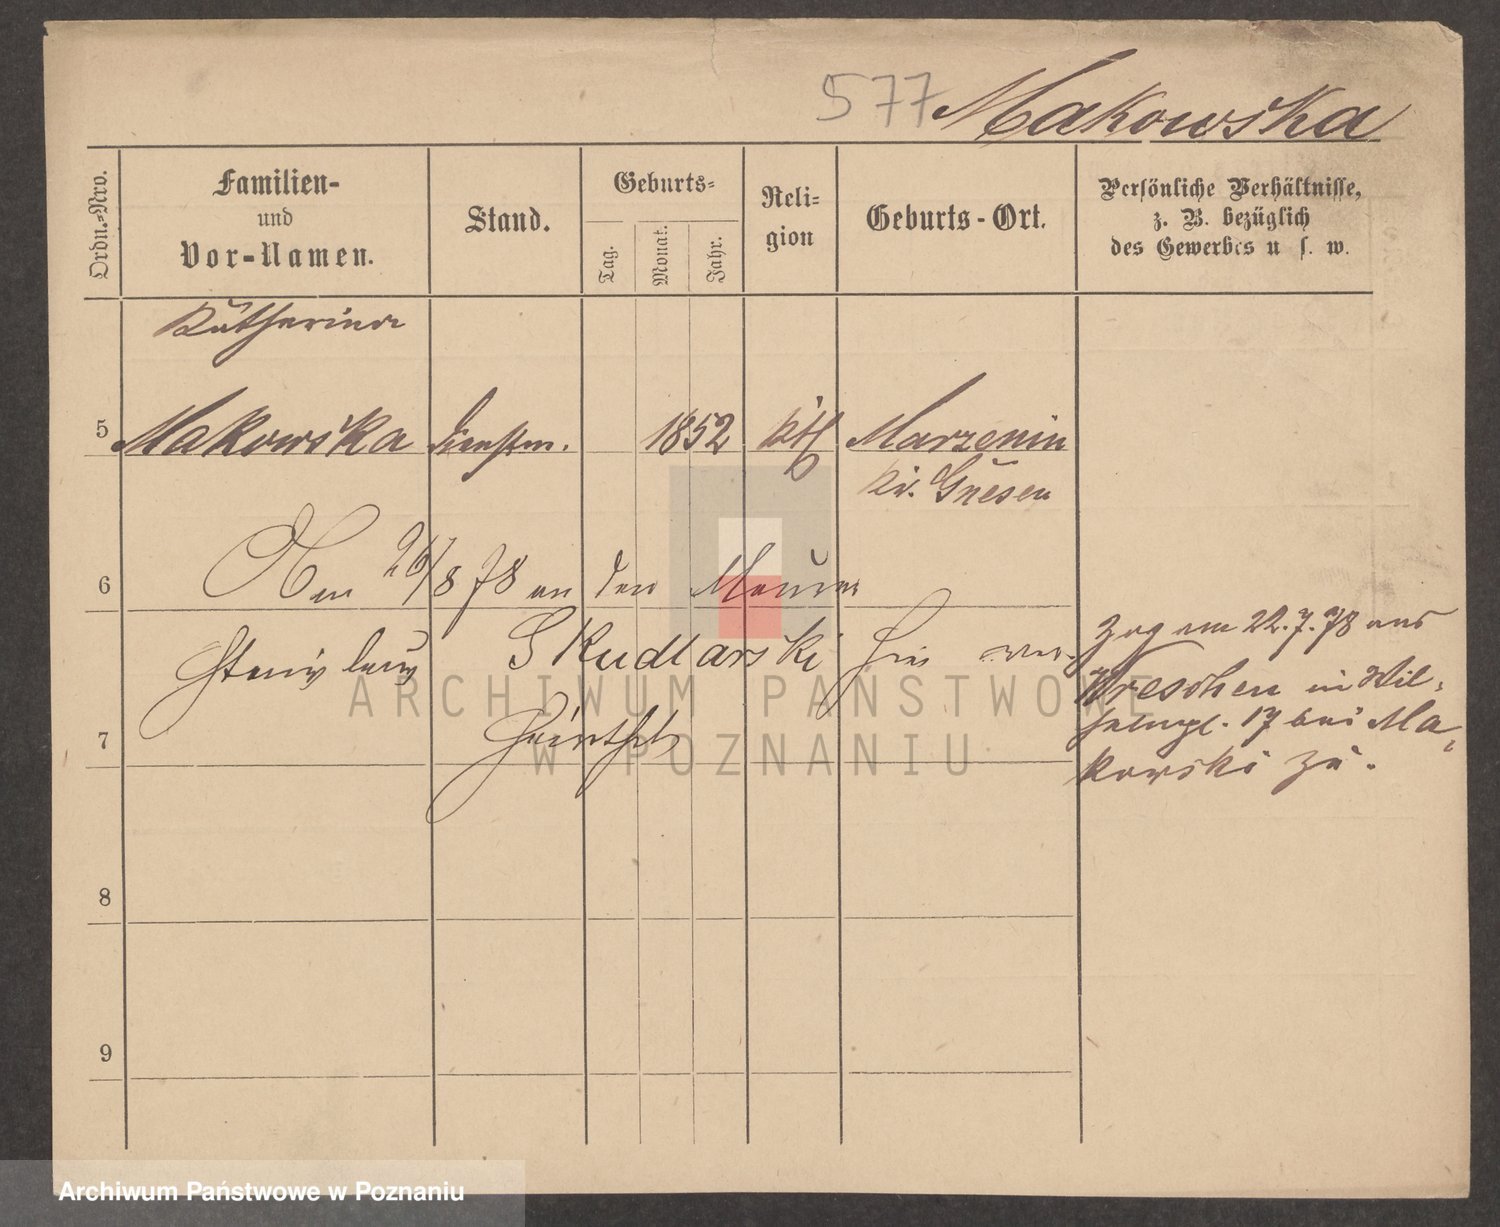 577 Makowska
Ordn.-Nro.
Familien-
und
Vor-Namen.
Stand.
Geburts-
Tag.
Monat.
Jahr.
Reli-
gion
Geburts-Ort.
Persönliche Verhältnisse,
z. B. bezüglich
des Gewerbes u s. w.
Katherina
5 Makowska Dienstm. 1852 kth Marzenin
Kr. Gnesen
6 Am 26/8 78 an den Maurer
Stanislaus Skudlarski hier ver-
7 heirathet
Zog am 22.7.78 aus
Wreschen in Wil-
helmpl. 17 bei Ma-
kowski zu.
8
9
ARCHIWUM PAŃSTWOWE
W POZNANIU
Archiwum Państwowe w Poznaniu